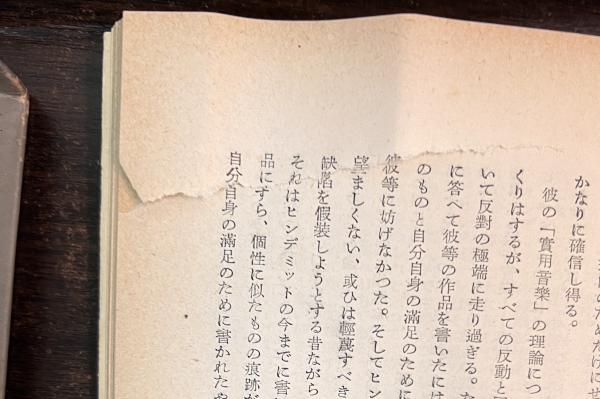 のためだけにせ
かなりに確信し得る。
彼の「實用音樂」の理論につ
くりはするが、すべての反動と
いて反對の極端に走り過ぎる。
に答へて彼等の作品を書いたには
のものと自分自身の滿足のために
彼等に妨げなかつた。そしてヒン
望ましくない、或ひは輕蔑すべき
缺陷を假裝しようとする昔ながら
それはヒンデミットの今までに書
品にすら、個性に似たものの痕跡が
自分自身の滿足のために書かれたや